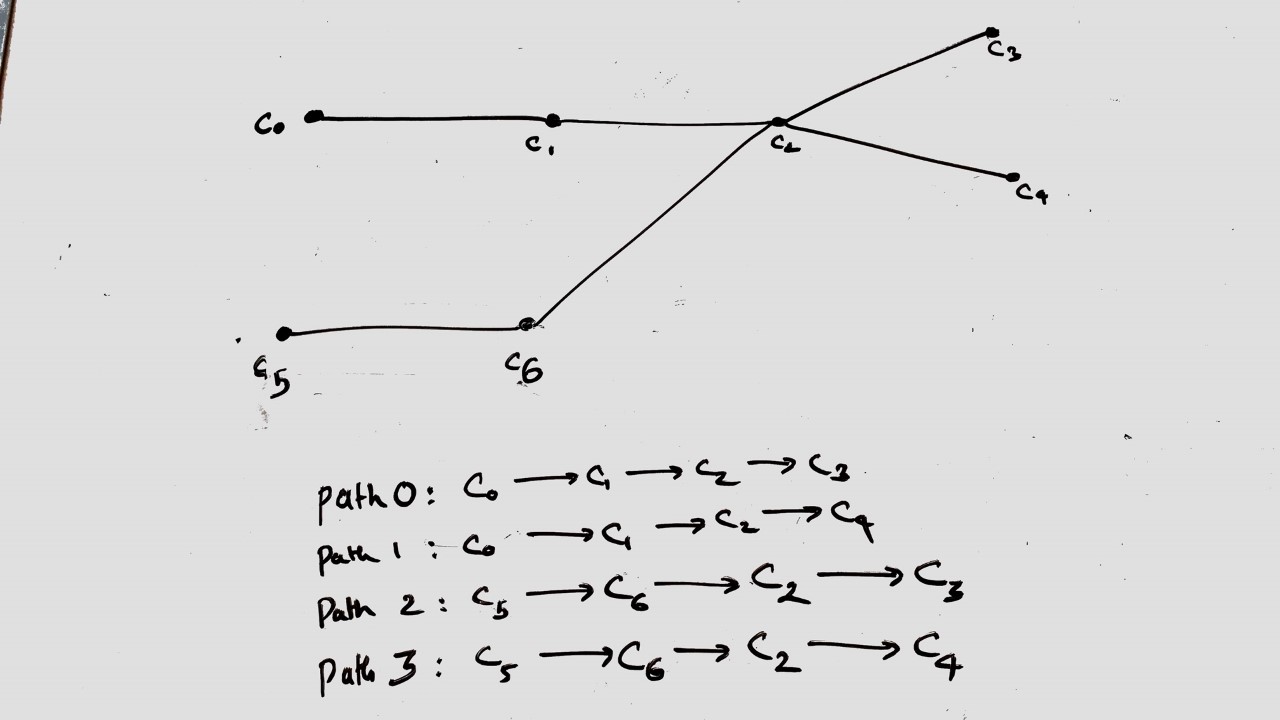 C3
C0
C1
C2
C4
C5
C6
path 0: C0 → C1 → C2 → C3
path 1: C0 → C1 → C2 → C4
Path 2: C5 → C6 → C2 → C3
path 3: C5 → C6 → C2 → C4